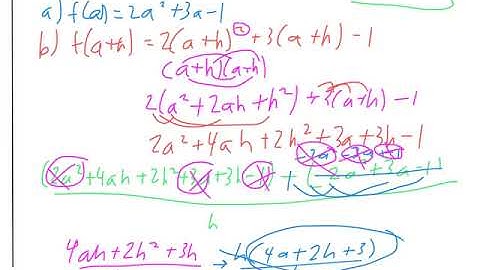 a) f(a) = 2a² + 3a - 1
b) f(a+h) = 2(a+h)² + 3(a+h) - 1
(a+h)(a+h)
2(a² + 2ah + h²) + 3(a+h) - 1
2a² + 4ah + 2h² + 3a + 3h - 1
-2a² -3a +1
(2a² + 4ah + 2h² + 3a + 3h - 1) + (-2a² + 3a - 1)
h
4ah + 2h² + 3h → h(4a + 2h + 3)